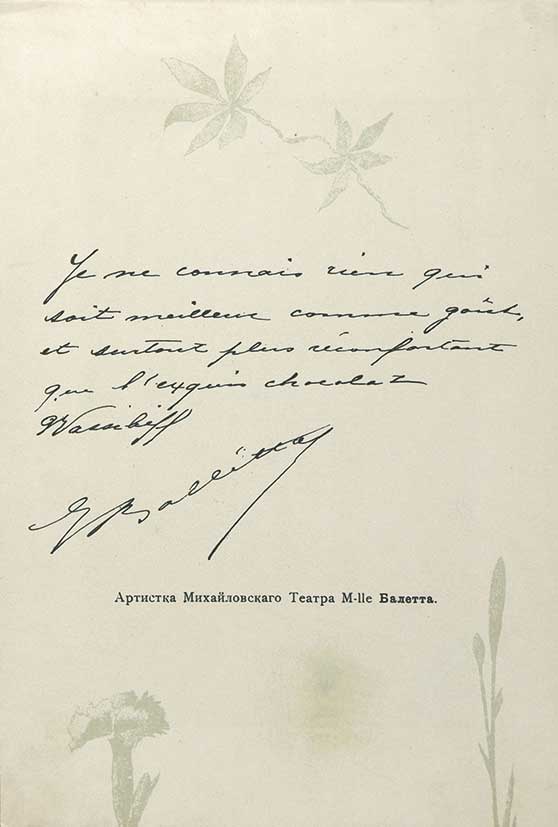 Je ne connais rien qui
soit meilleur comme goût,
et surtout plus réconfortant
que l'exquis chocolat
Wassilieff
Balletta
Артистка Михайловскаго Театра M-lle Балетта.